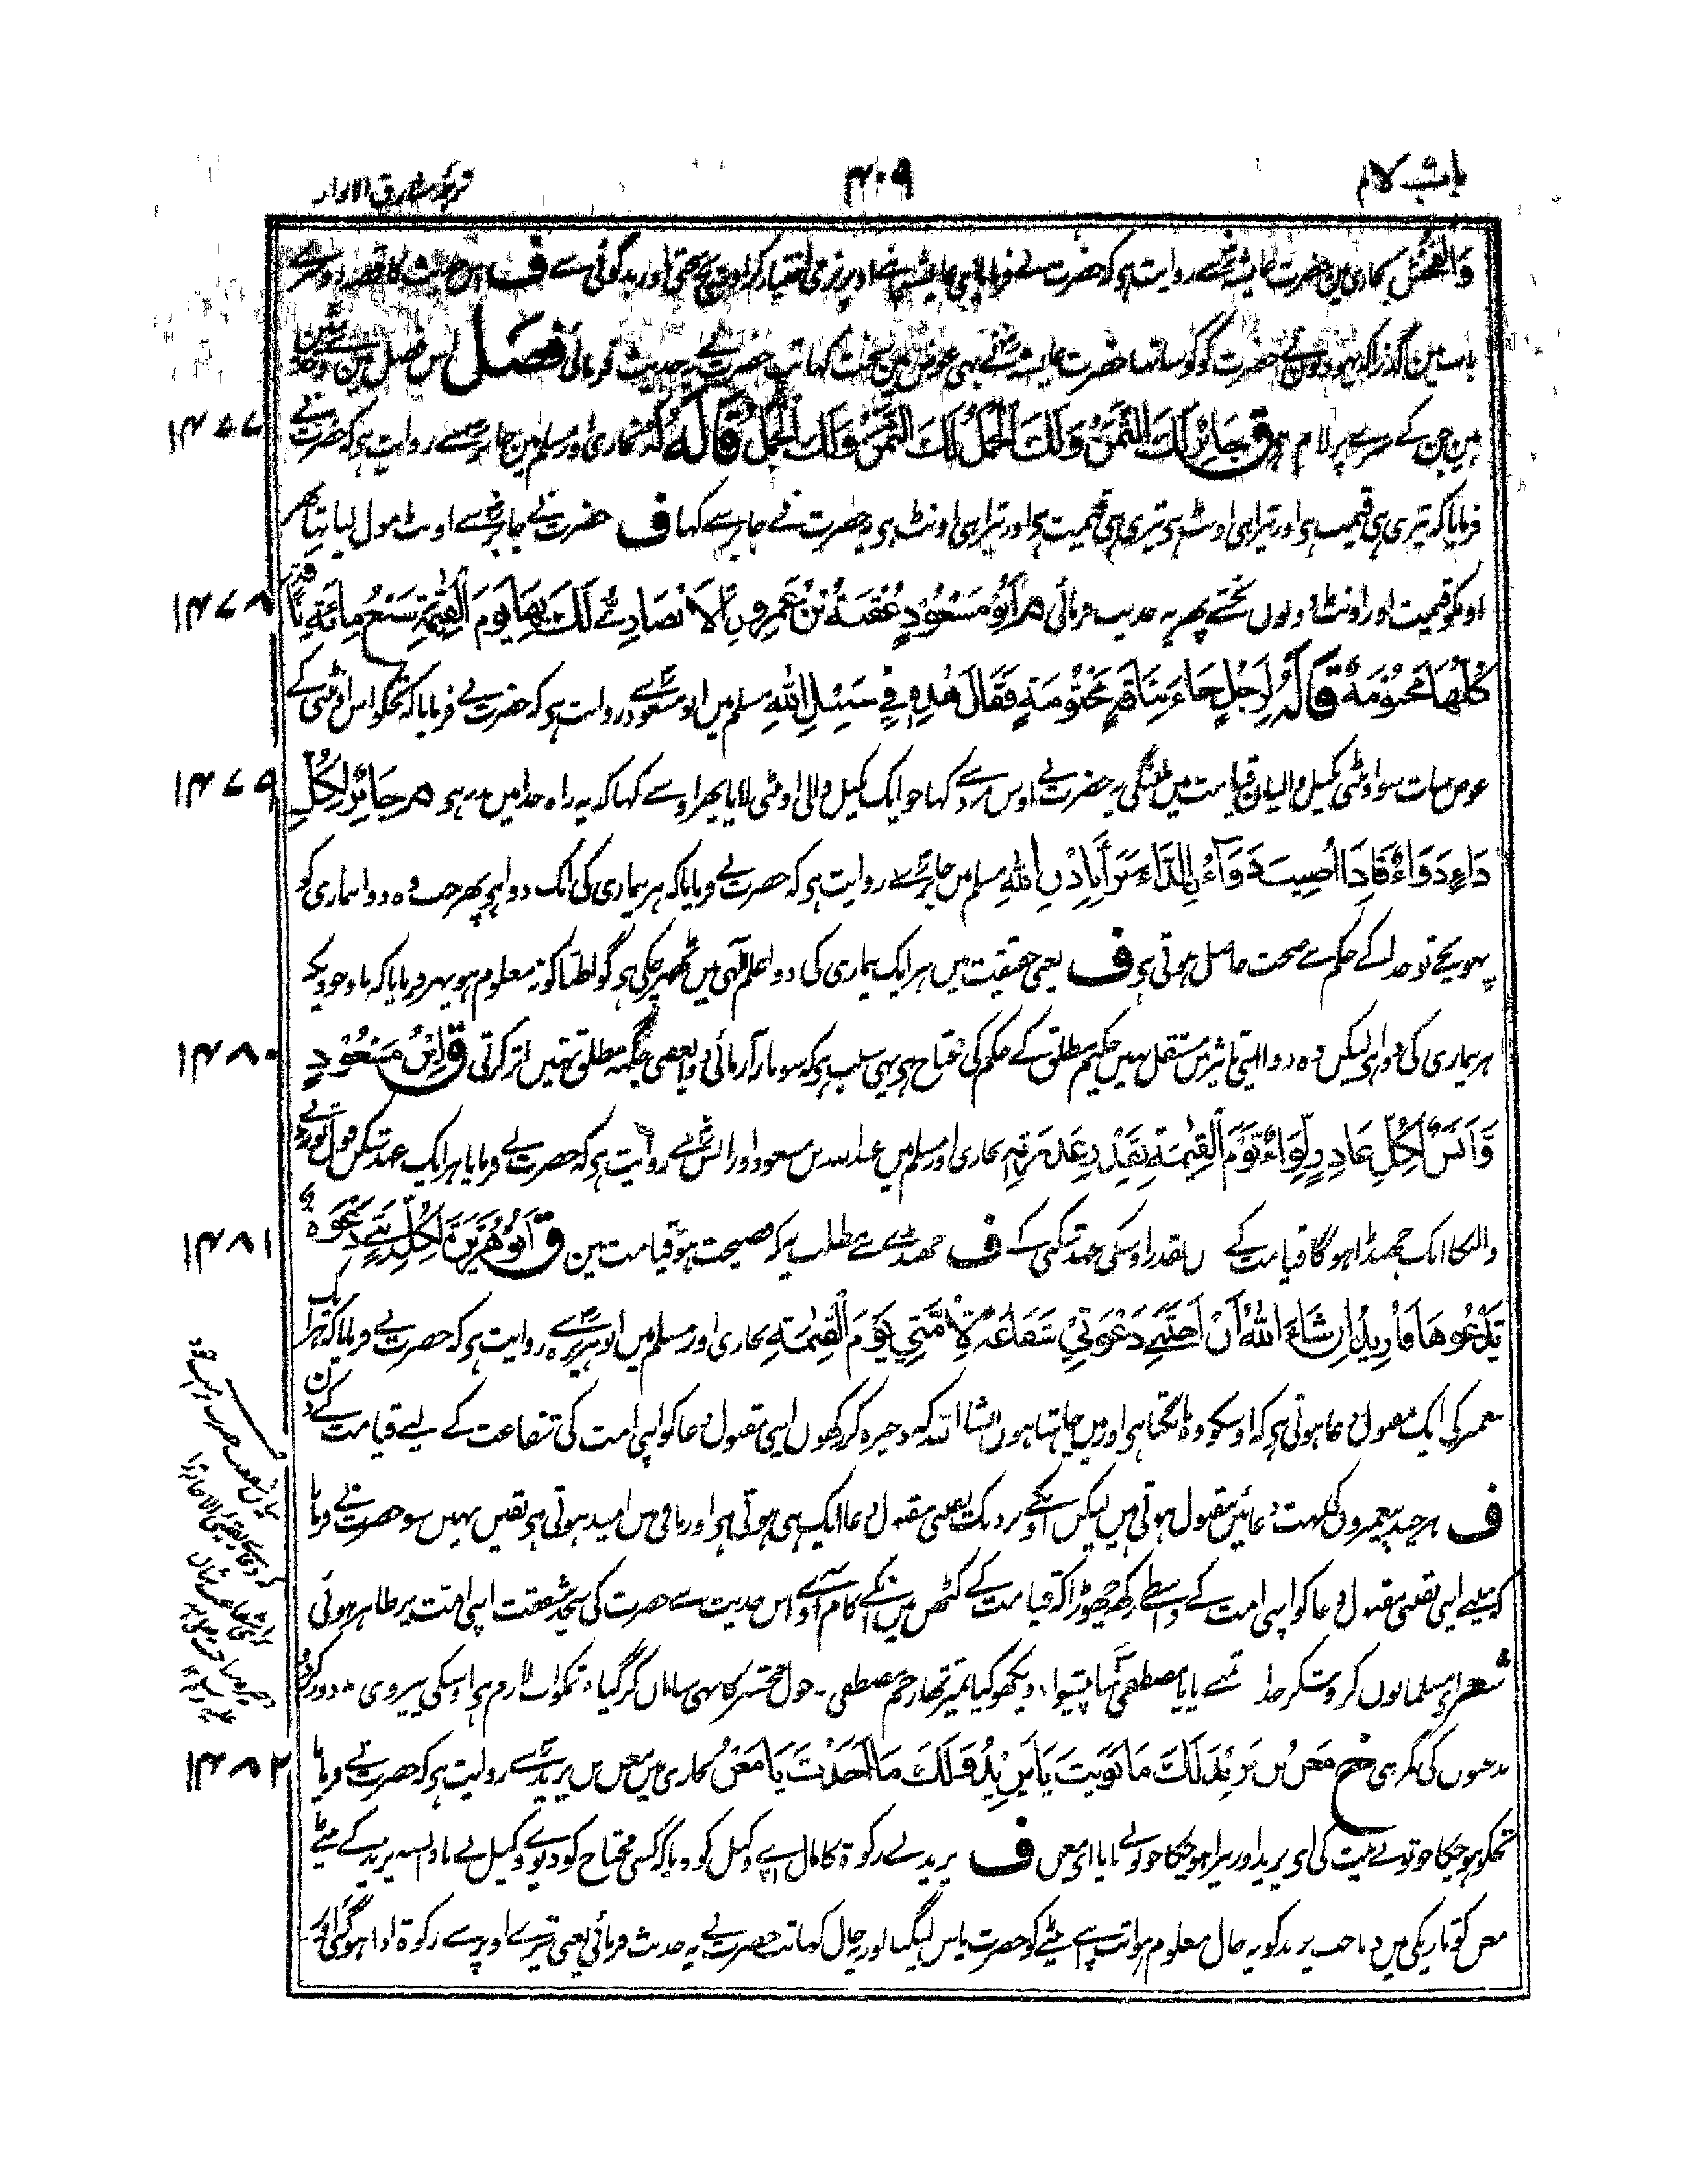 باب لام
۴۰۹
ترجمہ مشارق الانوار
والفحش بخاری مین حضرت عایشہ سے روایت ہی کہ حضرت نے فرمایا اپنی نرمی اختیار کر اور بچ سختی اور بدگوئی سے ف اس حدیث کا قصہ دوسرے
باب مین گذرا کہ یہودیون نے حضرت کو کوسا تھا حضرت عایشہ نے بھی عوض مین سخت کہا تب حضرت نے یہ حدیث فرمائی فصل اس فصل مین وہ حدیثین
ہین جن کے سرے پر لام ہی ق جَابِرٌ لَكَ الثَّمَنُ وَلَكَ الْجَمَلُ لَكَ الثَّمَنُ وَلَكَ الْجَمَلُ قَالَهُ لَهُ بخاری اور مسلم مین جابر سے روایت ہی کہ حضرت نے
۱۴۷۷
فرمایا کہ تیری ہی قیمت ہی اور تیرا ہی اونٹ ہی تیری ہی قیمت ہی اور تیرا ہی اونٹ ہی یہ حضرت نے جابر سے کہا ف حضرت نے جابر سے اونٹ مول لیا تھا پھر
اوسکو قیمت اور اونٹ دونوں بخشے پھر یہ حدیث فرمائی م اَبُوْ مَسْعُوْدٍ عُقْبَةُ بْنُ عَمْرٍو الْاَنْصَارِيُّ لَكَ بِهَا يَوْمَ الْقِيٰمَةِ سَبْعُ مِائَةِ نَاقَةٍ
۱۴۷۸
كُلُّهَا مَخْطُوْمَةٌ قَالَهُ لِرَجُلٍ جَاءَ بِنَاقَةٍ مَخْطُوْمَةٍ فَقَالَ هٰذِهٖ فِيْ سَبِيْلِ اللّٰهِ مسلم میں ابو مسعود سے روایت ہی کہ حضرت نے فرمایا کہ تجھکو اس اونٹنی کے
عوض سات سو اونٹنی نکیل والیاں قیامت میں ملینگی یہ حضرت نے اوس مرد سے کہا جو ایک نکیل والی اونٹنی لایا پھر اوسنے کہا کہ یہ راہ خدا میں ہی م جَابِرٌ لِكُلِّ
۱۴۷۹
دَاءٍ دَوَاءٌ فَاِذَا اُصِيْبَ دَوَاءُ الدَّاءِ بَرَاَ بِاِذْنِ اللّٰهِ مسلم میں جابر سے روایت ہی کہ حضرت نے فرمایا کہ ہر بیماری کی ایک دوا ہی پھر جب وہ دوا بیماری کو
پہونچے تو خدا کے حکم سے صحت حاصل ہوتی ہی ف یعنی حقیقت میں ہر ایک بیماری کی دوا علم الٰہی میں ٹھہر چکی ہی گو اطبا کو نہ معلوم ہو پھر فرمایا کہ باوجودیکہ
ہر بیماری کی دوا ہی لیکن وہ دوا اپنی تاثیر میں مستقل نہیں حکیم مطلق کے حکم کی محتاج ہی یہی سبب ہی کہ سو بار آزمائی دوا بعضی جگہ مطلق نہیں اثر کرتی ق اِبْنُ مَسْعُوْدٍ
۱۴۸۰
وَاَنَسٌ لِكُلِّ غَادِرٍ لِوَاءٌ يَوْمَ الْقِيٰمَةِ بِقَدْرِ غَدْرَتِهٖ بخاری اور مسلم میں عبد اللہ بن مسعود اور انس سے روایت ہی کہ حضرت نے فرمایا ہر ایک عہد شکن قول توڑنے
والیکا ایک جھنڈا ہوگا قیامت کے دن بقدر اوسکی عہد شکنی کے ف جھنڈے سے مطلب یہ کہ فضیحت ہو قیامت میں ق اَبُوْ هُرَيْرَةَ لِكُلِّ نَبِيٍّ دَعْوَةٌ
۱۴۸۱
يَدْعُوْهَا فَاُرِيْدُ اِنْ شَاءَ اللّٰهُ اَنْ اَخْتَبِئَ دَعْوَتِيْ شَفَاعَةً لِاُمَّتِيْ يَوْمَ الْقِيٰمَةِ بخاری اور مسلم میں ابو ہریرہ سے روایت ہی کہ حضرت نے فرمایا کہ ہر ایک
پیغمبر کی ایک مقبول دعا ہوتی ہی کہ اوسکو وہ مانگتا ہی اور میں چاہتا ہوں انشا اللہ کہ ذخیرہ کر رکھوں اپنی مقبول دعا کو اپنی امت کی شفاعت کے لیے قیامت کے دن
ف ہر چند پیغمبروں کی بہت دعائیں مقبول ہوتی ہیں لیکن اونکے نزدیک یعنی مقبول دعا ایک ہی ہوتی ہی اور باقی میں امید ہوتی ہی یقین نہیں سو حضرت نے فرمایا
کہ مینے اپنی یقینی مقبول دعا کو اپنی امت کے واسطے رکھ چھوڑا کہ قیامت کے کٹھن میں انکے کام آوے اس حدیث سے حضرت کی بیحد شفقت اپنی امت پر ظاہر ہوئی
شعر ای مسلمانوں کرو شکر خدا تمنے پایا مصطفی سا پیشوا دیکھو کیا تمپر تھا رحم مصطفی حول محشر کا یہی ساماں کر گیا تمکو اب لازم ہی اوسکی پیروی دور کردو
بدعتوں کی گمرہی خ مَعْنُ بْنُ يَزِيْدَ لَكَ مَا نَوَيْتَ يَا يَزِيْدُ وَلَكَ مَا اَخَذْتَ يَا مَعْنُ بخاری میں معن بن یزید سے روایت ہی کہ حضرت نے فرمایا
۱۴۸۲
تجھکو ہو چکا جو تو نے نیت کی ای یزید اور تیرا ہو چکا جو تو نے پایا ای معن ف یزید نے زکوۃ کا مال اپنے وکیل کو دیا کہ کسی محتاج کو دیوے وکیل نے نادانستہ یزید کے بیٹے
معن کو تاریکی میں دیا جب یزید کو یہ حال معلوم ہوا تب اپنے بیٹے کو حضرت پاس لیگیا اور حال کہا تب حضرت نے یہ حدیث فرمائی یعنی تیرے اوپر سے زکوۃ ادا ہو گئی اور